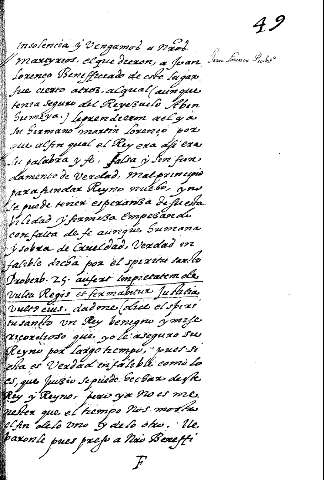 49
insolencia y Vengamos a nros
martyrios. el que dieron, a Juan
Lorenço Beneffeciado de este lugar
fue cierto atros. al qual (aunque
tenia seguro del Reyezuelo Aben
humeya.) le prendieron a el y a
su hermano martin Lorenço por
que al fin qual el Rey era assi era
su palabra y fe. falsa y sin fun
damento de Verdad. mal principio
para fundar Reyno nuebo, y no
se puede tener esperanza de su esta
vilidad y firmeza empesando
con falta de fe aunque humana
y sobra de Crueldad. Verdad in
falible dicha por el spiritu santo
Proberb. 25. aufert impietatem de
vultu Regis et firmabitur Justitia
vultus eius. dadme (dice el spiri
tu santo un Rey benigno y mise
ricordioso que yo le aseguro su
Reyno por largo tiempo, pues si
esta es Verdad infalible como lo
es, que Juicio se puede hechar deste
Rey y Reyno, pero ya no es me
nester que el tiempo nos mostro
el fin de lo uno y de lo otro. lle
baronle pues preso a nro Beneffi
F